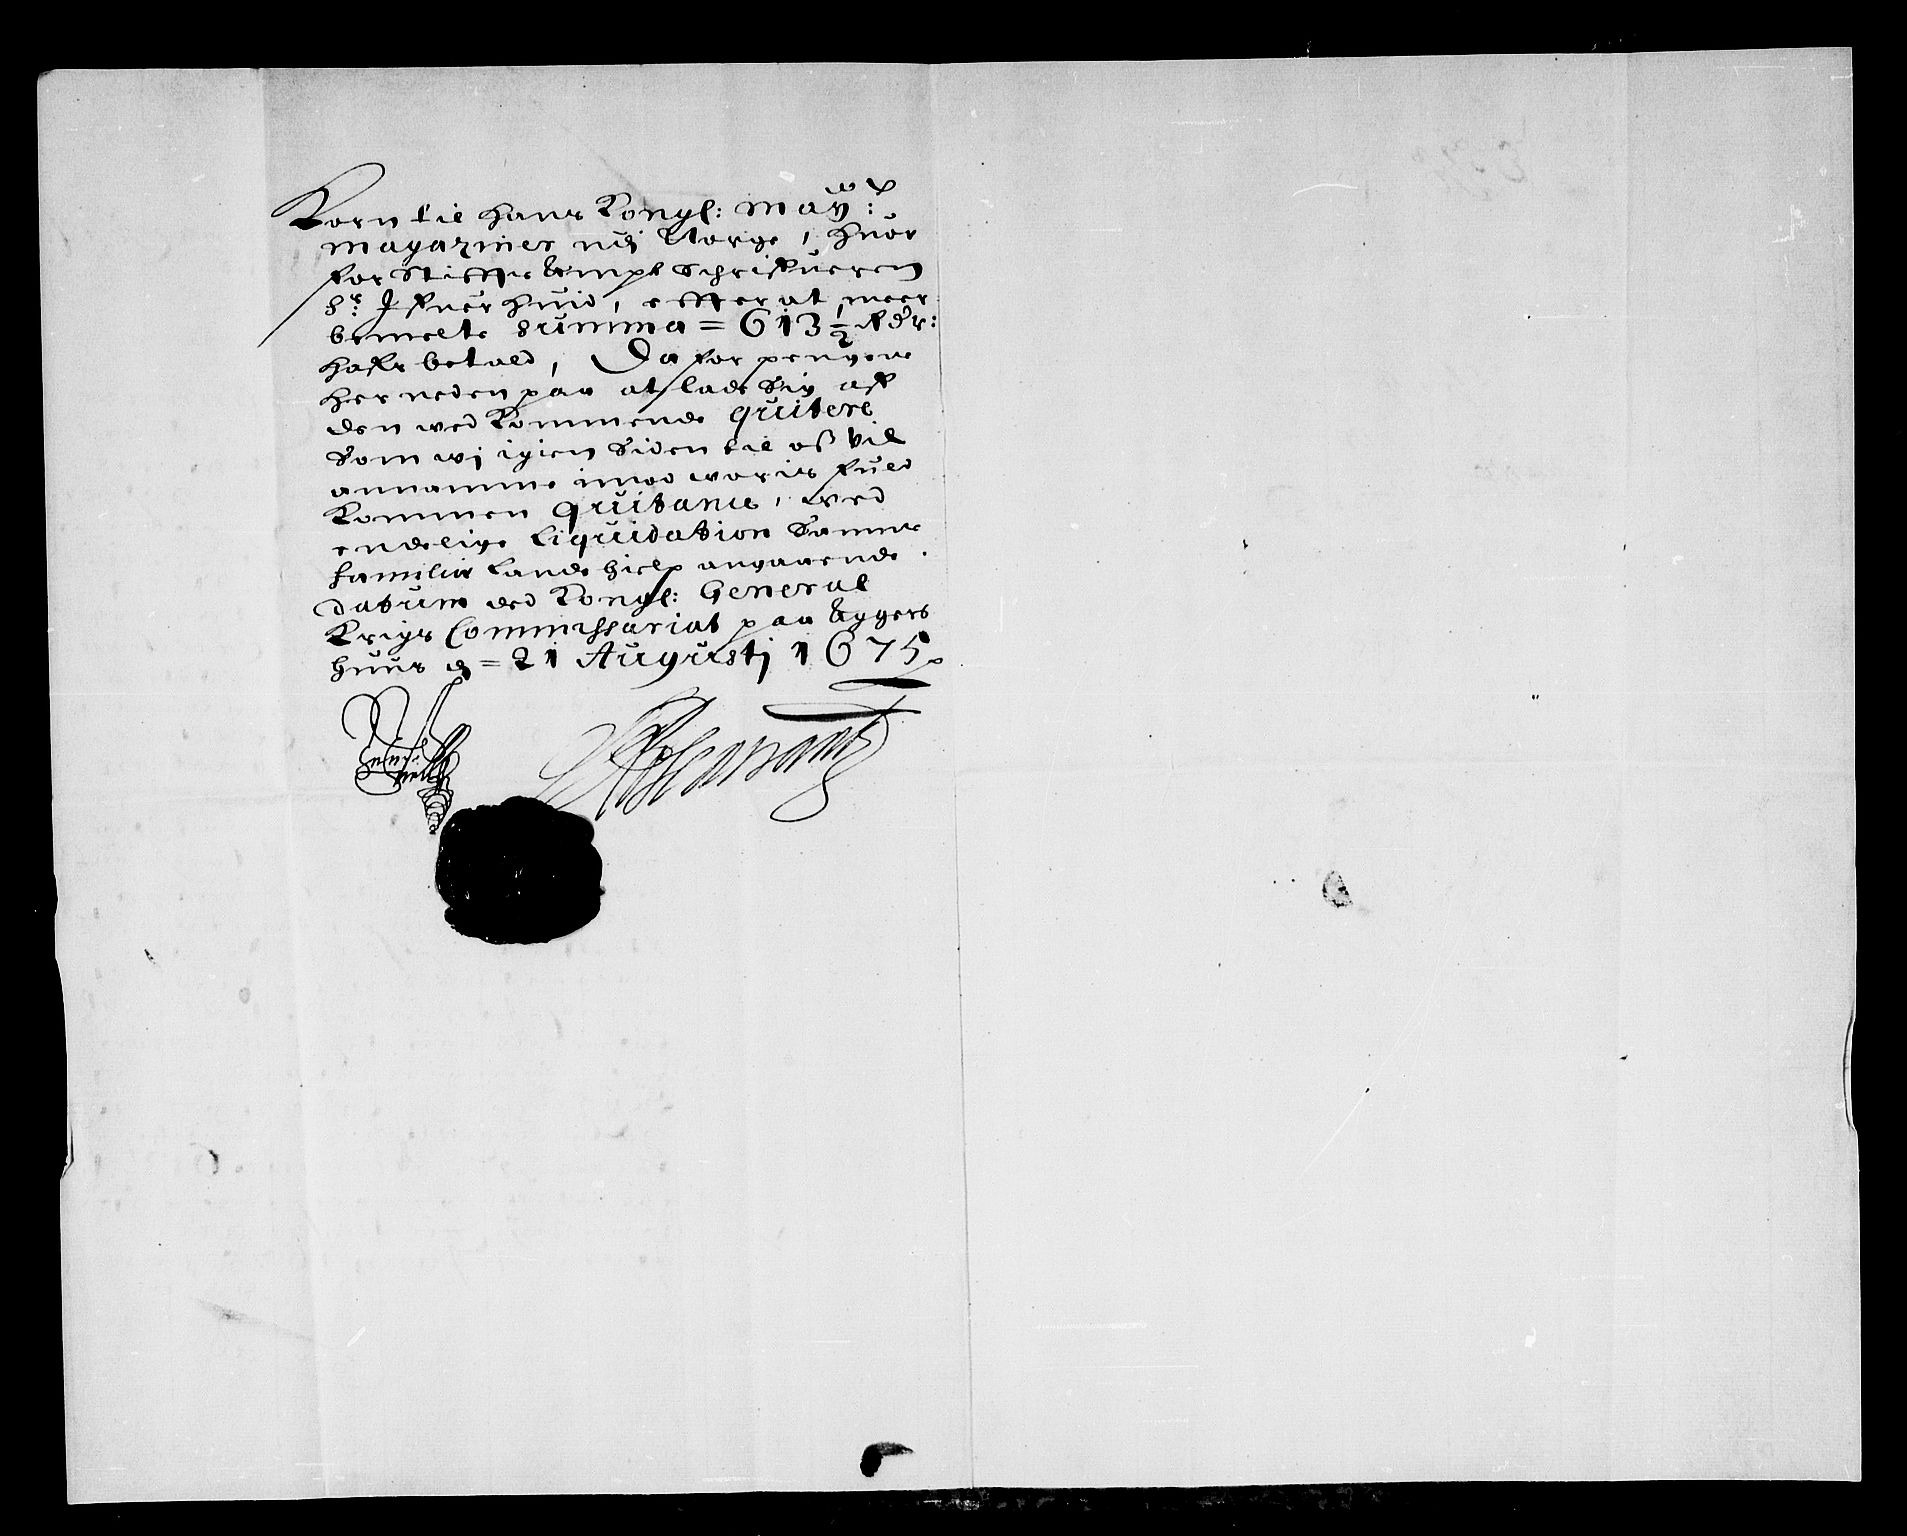 Korn til hans Kongl: May:ts
magaziner udj Norge, huor
for Stiffts Ampt Schrifueren
Sr: Ifuer huid, effter at meer
bemelte summa = 613½ Rdr:
hafr betald, Da for pengene
her neden paa at lade Sig aff
den ved Kommende quitere
Som wj igien Siden til oß vil
annamme imod woris fuld
Kommen quitanis, ved
endelige liquidation Samme
familie Lande hielp angaaende.
datum ved Kongl: General
Krigs Commissariat paa Aggers
huus d = 21 Augustj 1675